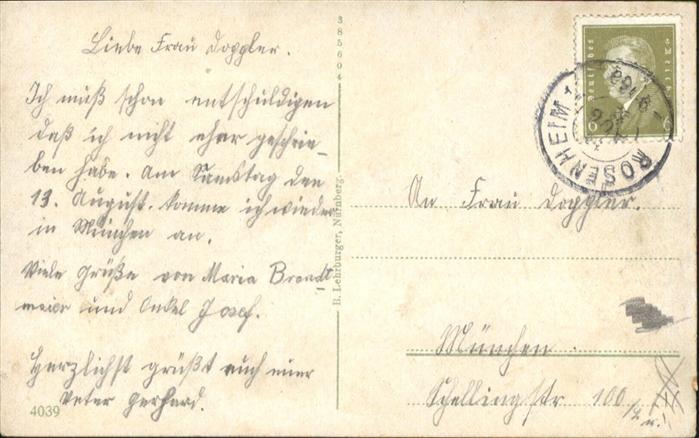 Liebe Frau Doppler.
Ich muß schon entschuldigen
daß ich nicht eher geschrie-
ben habe. Am Samstag den
13. August. komme ich wieder
in München an.
Viele Grüße von Maria Brandt
meier und Onkel Josef.
Herzlichst grüßt euch euer
Vater Gerhard.
4039
385604
B. Lehrburger, Nürnberg.
Deutsches Reich
6 6
ROSENHEIM 1
An Frau Doppler.
München.
Schellingstr 100/4